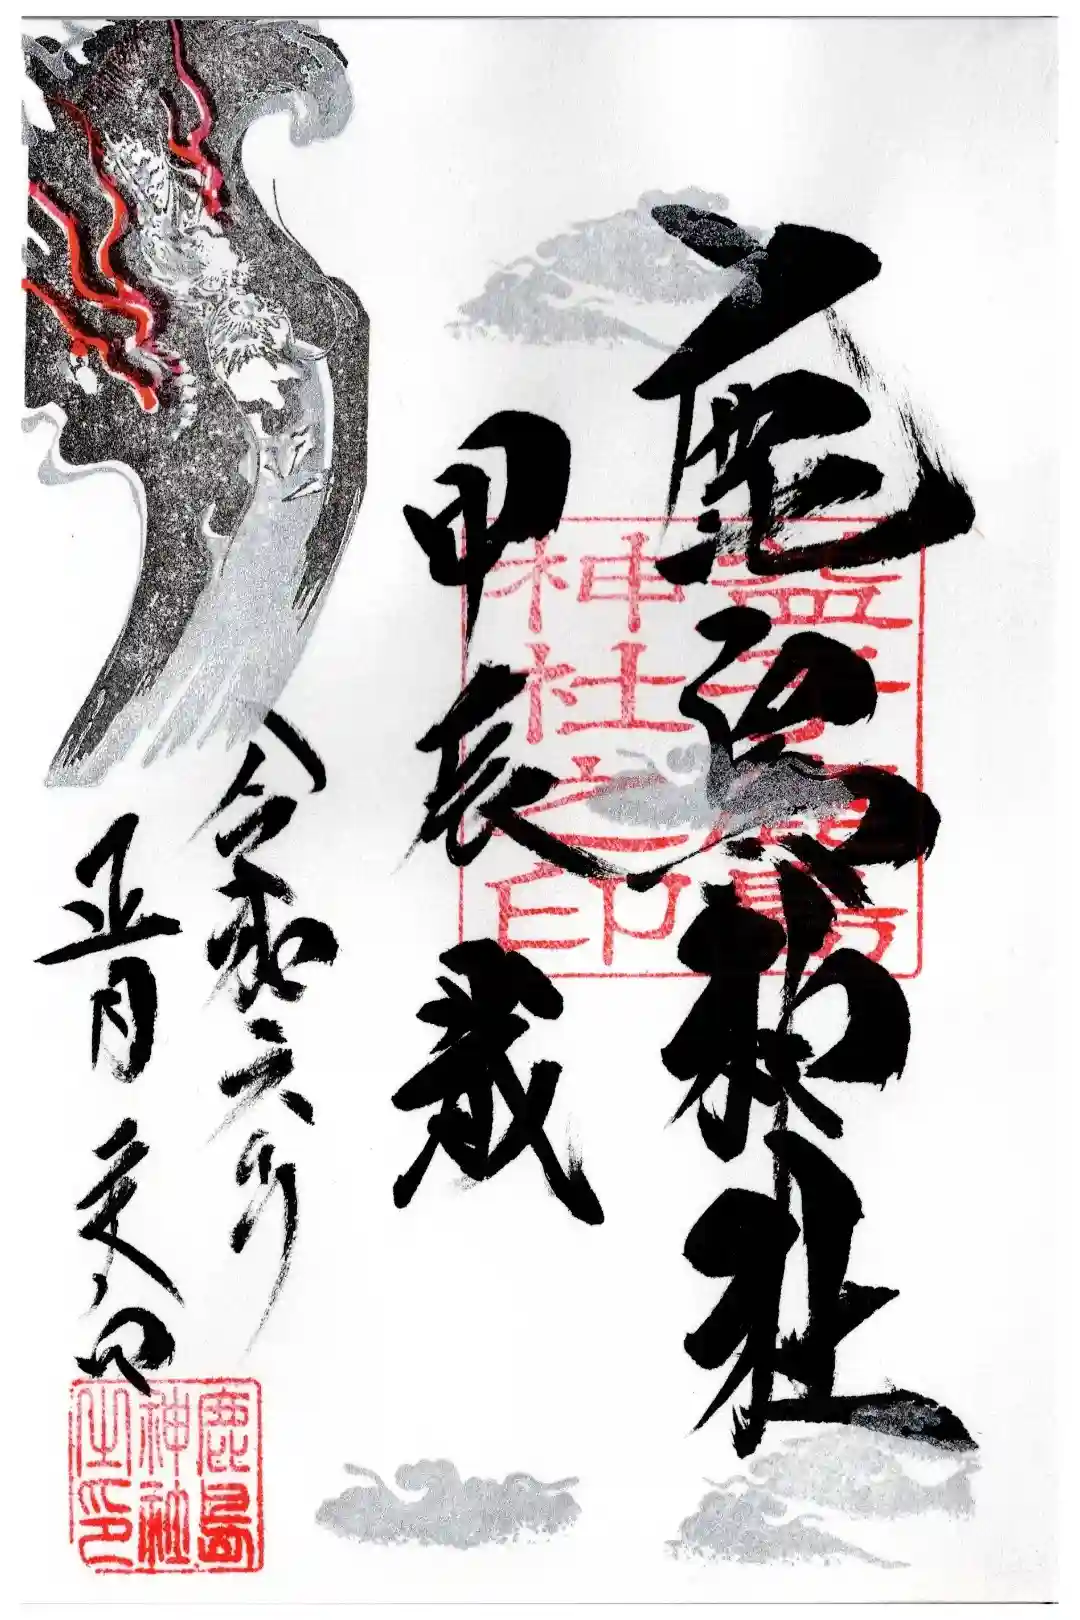 鹿島神社
益子鹿島
神社之印
甲辰歳
令和六年
正月
鹿島
神社
之印